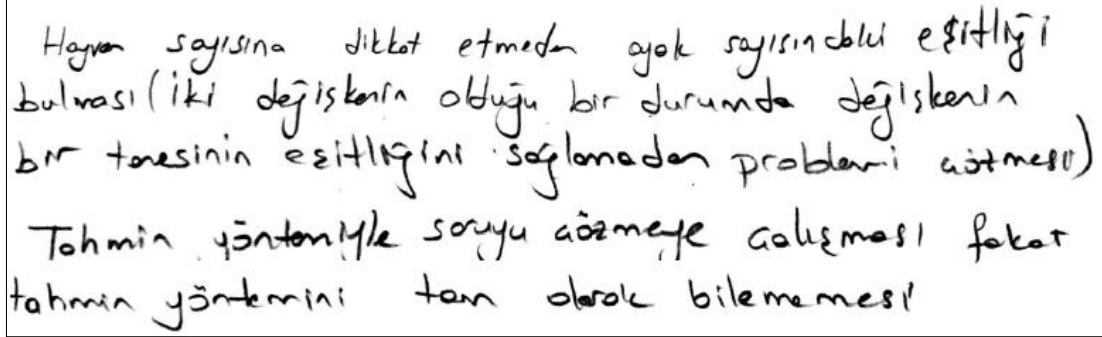 Hayvan sayısına dikkat etmeden ayak sayısındaki eşitliği
bulması (iki değişkenin olduğu bir durumda değişkenin
bir tanesinin eşitliğini sağlamadan problemi çözmesi)
Tahmin yöntemiyle soruyu çözmeye çalışması fakat
tahmin yöntemini tam olarak bilememesi